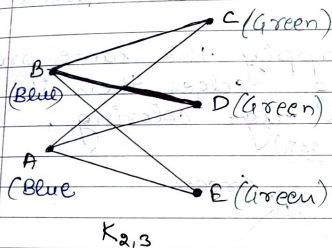 C (Green)
B
(Blue)
D (Green)
A
(Blue
E (Green)
K2,3